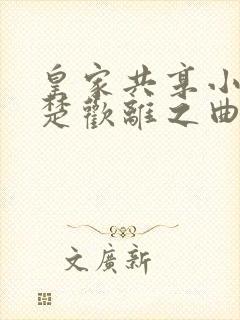 皇家共享小
楚歡離之曲
文廣新